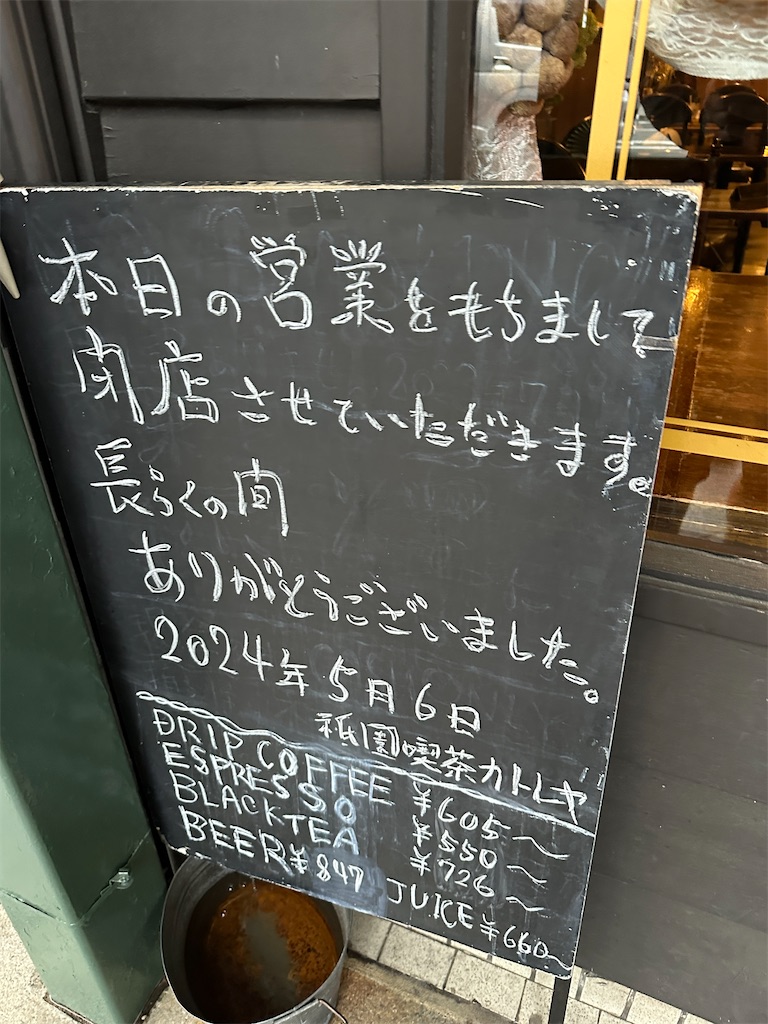 本日の営業をもちまして
閉店させていただきます。
長らくの間
ありがとうございました。
2024年5月6日
祇園喫茶カトレヤ
DRIP COFFEE ¥605〜
ESPRESSO ¥550〜
BLACKTEA ¥726〜
BEER ¥847 JUICE ¥660〜